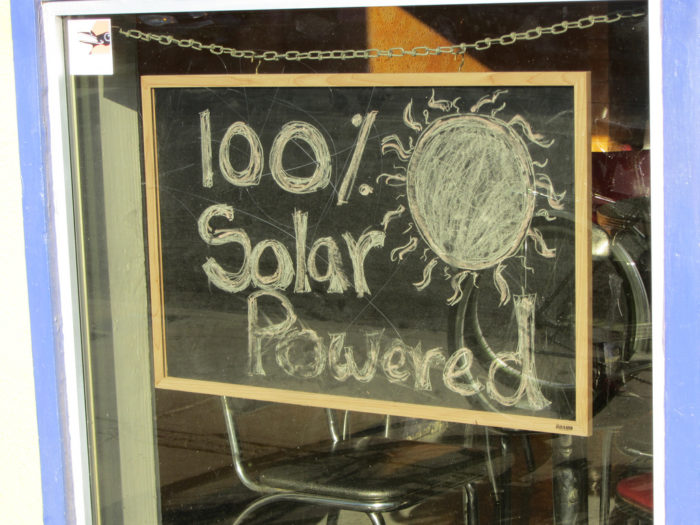 100%
Solar
Powered